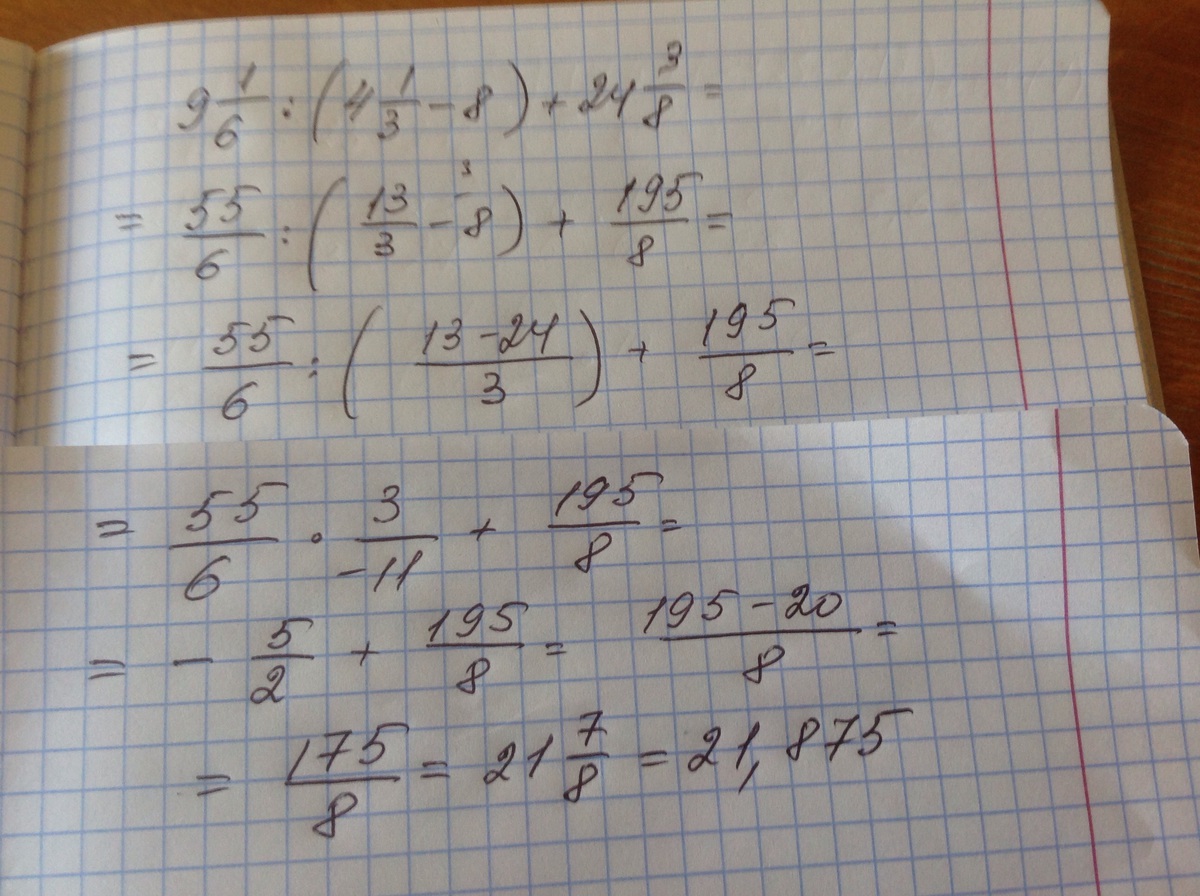 9 1/6 : (4 1/3 - 8) + 24 3/8 =
= 55/6 : (13/3 - 8 3) + 195/8 =
= 55/6 : ((13-24)/3) + 195/8 =
= 55/6 · 3/-11 + 195/8 =
= - 5/2 + 195/8 = (195-20)/8 =
= 175/8 = 21 7/8 = 21,875